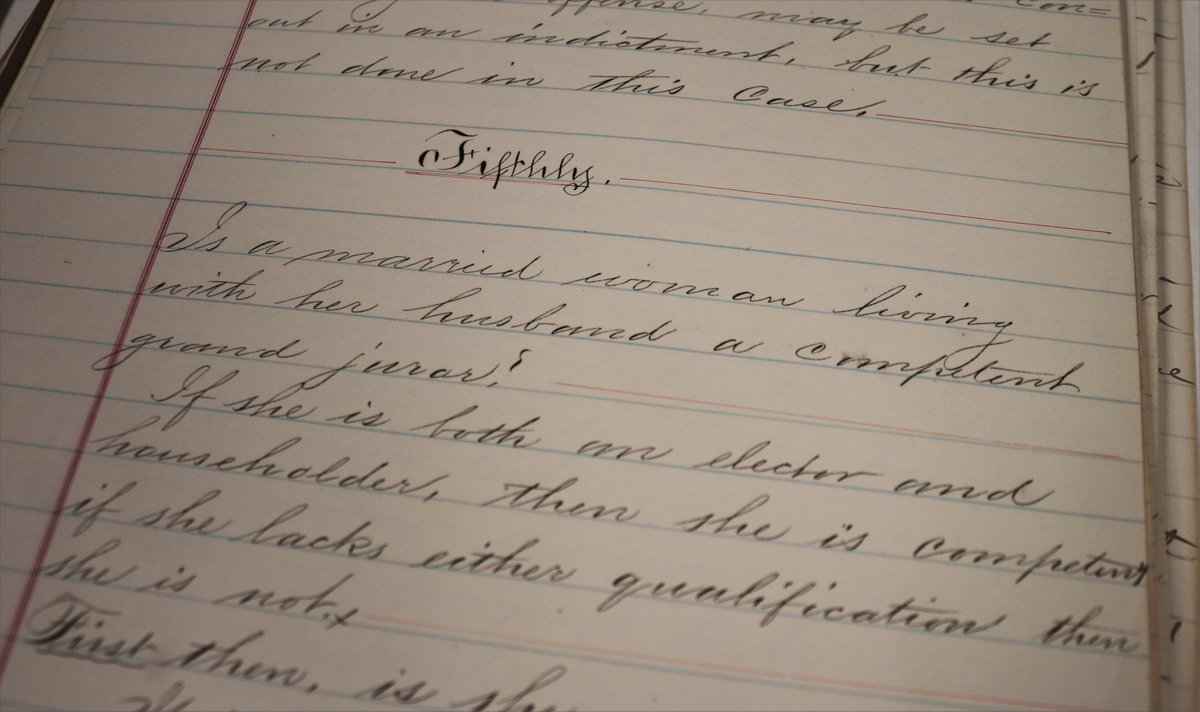 offense, may be set
out in an indictment, but this is
not done in this case.
Fifthly.
Is a married woman living
with her husband a competent
grand juror?
If she is both an elector and
householder, then she is competent,
if she lacks either qualification then
she is not.
First then, is she